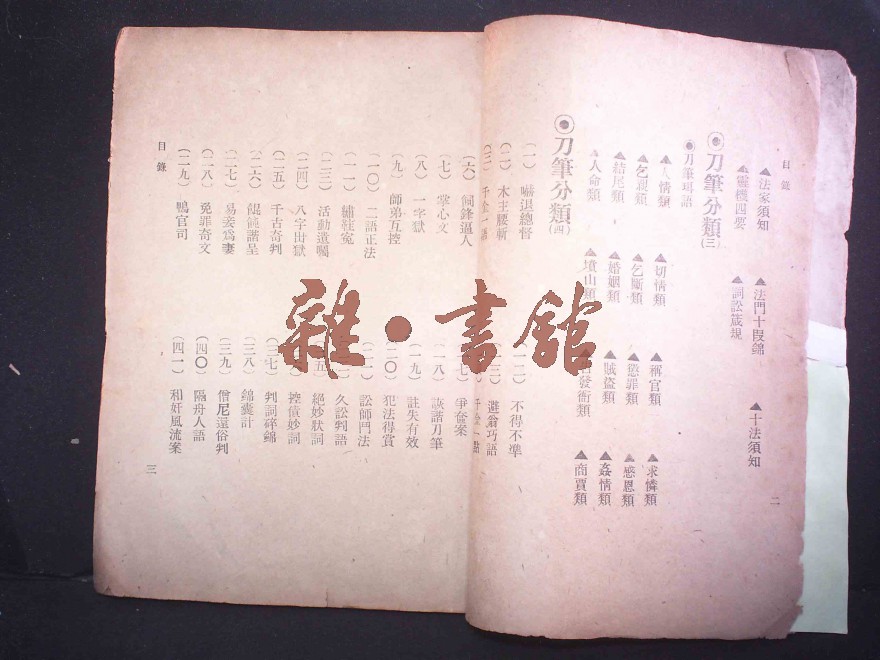 目錄
▲法家須知 ▲法門十段錦 ▲十法須知
▲靈機四要 ▲詞訟箴規
◉刀筆分類(三)
◉刀筆珥語
▲人情類 ▲切情類 ▲稱官類 ▲求憐類
▲乞親類 ▲乞斷類 ▲懲罪類 ▲感恩類
▲結尾類 ▲婚姻類 ▲賊盜類 ▲姦情類
▲人命類 ▲墳山類 發衙類 ▲商賈類
◉刀筆分類(四)
二
(一)嚇退總督 (一二)不得不準
(二)木主腰斬 三)避翁巧語
(三)千金一語 千金一點
(六)伺鋒逼人 爭奩案
(七)掌心文 (一八)詼諧刀筆
(八)一字獄 (一九)註失有效
(九)師弟互控 (二〇)犯法得賞
(一〇)二語正法 訟師鬥法
(一一)繡鞋冤 久訟判語
(二三)活動遺囑 絕妙狀詞
(二四)八字出獄 控債妙詞
(二五)千古奇判 (三七)判詞碎錦
(二六)餛飩諧呈 (三八)錦囊計
(二七)易妾爲妻 (三九)僧尼還俗判
(二八)免罪奇文 (四〇)隔舟人語
(二九)鴨官司 (四一)和奸風流案
目錄
三
雜·書館